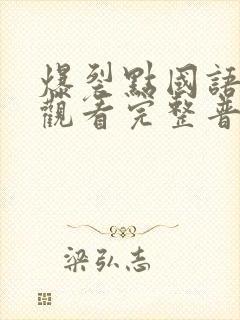 爆裂點國語
觀看完整普
梁弘志